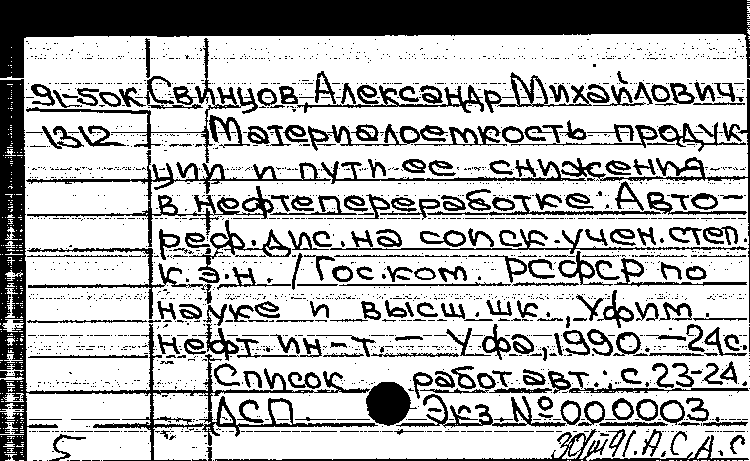 91-50к Свинцов, Александр Михайлович.
1312 Материалоемкость продук-
ции и пути ее снижения
в нефтепереработке: Авто-
реф. дис. на соиск. учен. степ.
к.э.н. / Гос. ком. РСФСР по
науке и высш. шк., Уфим.
нефт. ин-т. - Уфа, 1990. - 24с.
Список работ авт.: с. 23-24.
ДСП. Экз. № 000003.
5 30/III 91. А.С, А.С